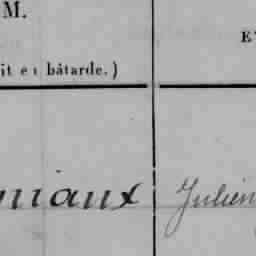 M.
E
it en bâtarde.)
niaux Julien